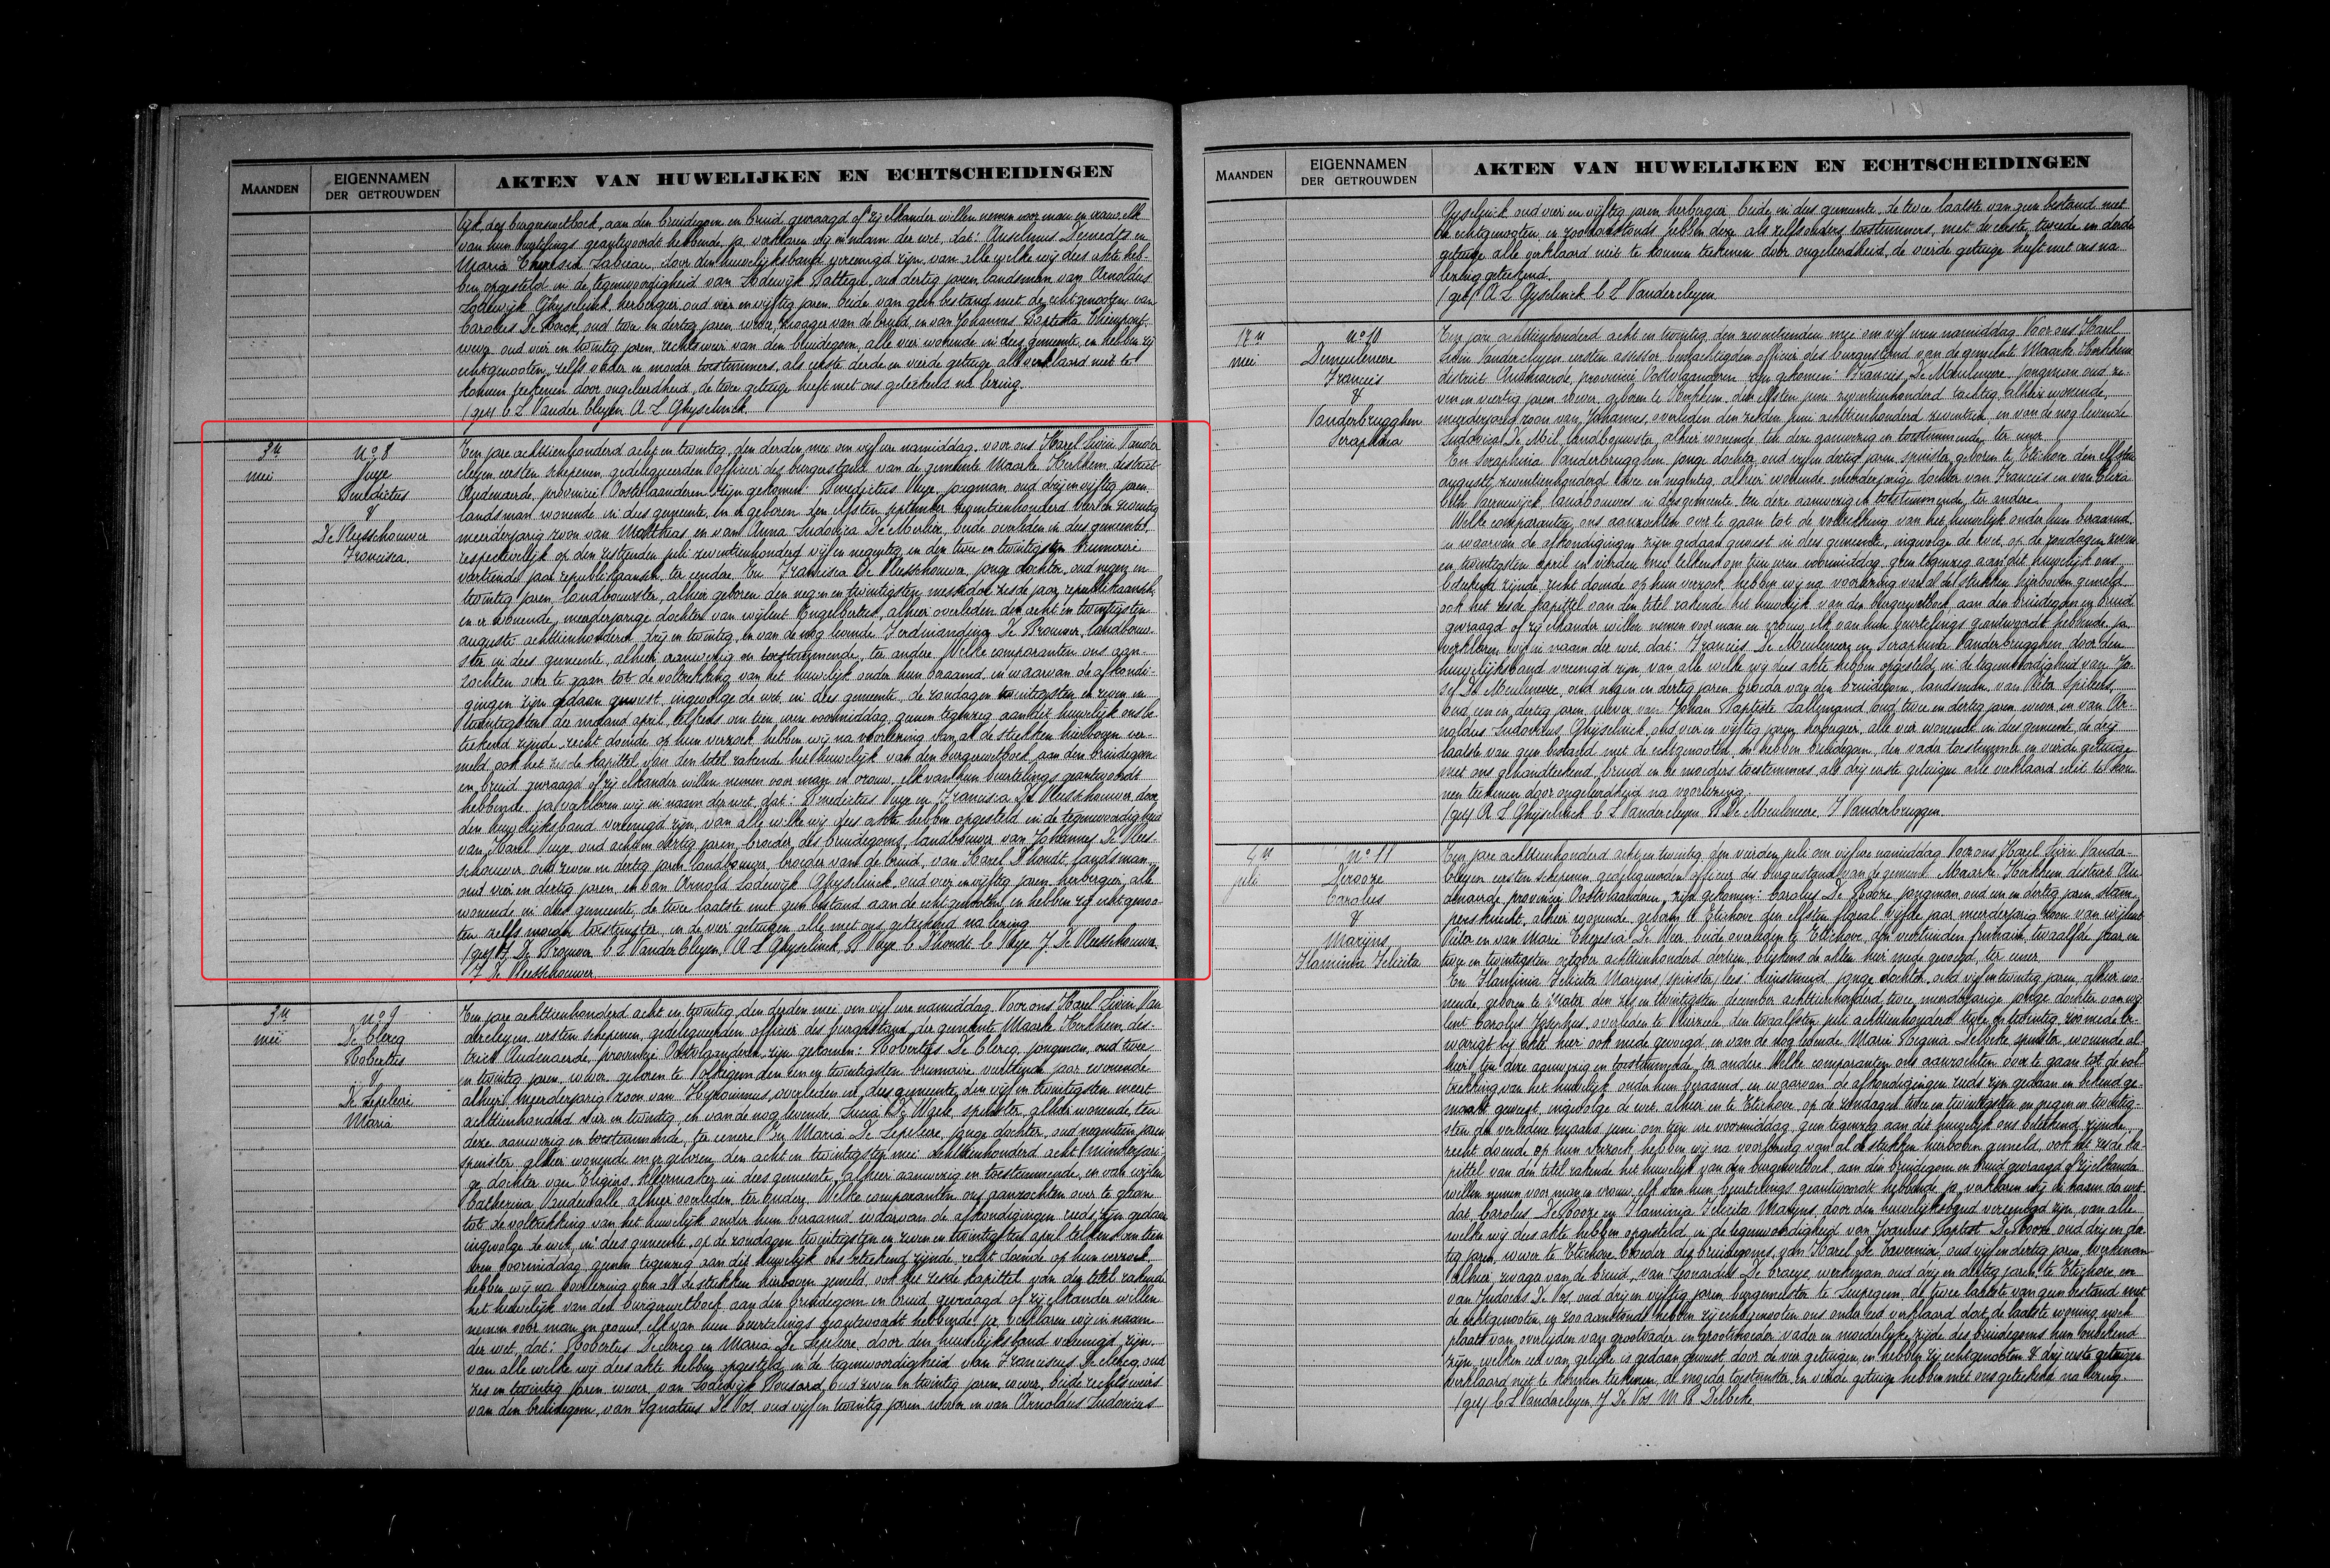 MAANDEN
EIGENNAMEN
DER GETROUWDEN
AKTEN VAN HUWELIJKEN EN ECHTSCHEIDINGEN
lijk des burgerwetboek, aan den bruidegom en bruid gevraagd of zij elkander willen nemen voor man en vrouw, elk
van hun beurtelings geantwoordt hebbende, ja verklaren wij in naam der wet, dat: Anselmus Demedts en
Maria Theresia Labieau, door den huwelijksband vereenigd zijn, van alle welke wij dees akte heb-
ben opgesteld in de tegenwoordigheid van Lodewijk Vattegn, oud dertig jaren landsman van Arnoldus
Lodewijk Ghyselinck, herbergier oud vier en vijftig jaren, beide van geen bestand met de echtgenooten, van
Carolus De Bock, oud twee en dertig jaren wever, zwager van de bruid, en van Johannes Baptista
wever oud vier en twintig jaren, rechtsweer van den bruidegom, alle vier wonende in dees gemeente, en hebben zij
echtgenooten, zelfs vader en moeder toestemmers, als eerste derde en vierde getuige alle verklaard niet te
konnen teekenen door ongeleerdheid, de twee getuige heeft met ons geteekend na lezing.
(get) C L Vander Cleyen A L Ghyselinck.
3n
mei
No 8
Vuye
Benedictus
&
De Vleeschouwer
Francisca.
Een jare achttienhonderd acht en twintig, den derden mei om vijf ure namiddag, voor ons Karel Livin Vander
cleyen eersten schepenen, gedelegueerden officier des burgerstand van de gemeente Maarke Kerkhem, district
Audenaerde, provincie Oostvlaanderen zijn gekomen: Benedictus Vuye, jongman oud drij en vijftig jaren
landsman wonende in dees gemeente, en er geboren den elfsten september zeventienhonderd vier en zeventig
meerderjarig zoon van Matthias en van Anna Ludovica De Merlier, beide overleden in dees gemeente,
respectievelijk op den zestienden juli zeventienhonderd vijf en negentig en den twee en twintigsten brumaire
veertiende jaar republikaansch, ter eendre. En Francisca De Vleeschouwer, jonge dochter, oud negen en
twintig jaren, landbouwster, alhier geboren den negen en twintigsten messidor zesde jaar republikaansch,
en er wonende, meerderjarige dochter van wijlent Engelbertus, alhier overleden den acht en twintigsten
auguste achttienhonderd drij en twintig, en van de nog levende Ferdinandina De Brouwer, landbouw-
ster in dees gemeente, alhier aanwezig en toestemmende, ter andere. Welke comparanten ons aan-
zochten over te gaan tot de voltrekking van het huwelijk onder hun beraamd, en waarvan de afkondi-
gingen zijn gedaan geweest, ingevolge de wet, in dees gemeente, de zondagen twintigsten en zeven en
twintigsten der maand april, telkens om tien uren voormiddag, geenen tegenzeg aan dit huwelijk ons be-
teekend zijnde, recht doende op hun verzoek, hebben wij na voorlezing van al de stukken hierboven ver-
meld, ook het zesde kapittel van den titel rakende het huwelijk van den burgerwetboek, aan den bruidegom
en bruid gevraagd of zij elkander willen nemen voor man en vrouw, elk van hun beurtelings geantwoordt
hebbende, ja verklaren wij in naam der wet, dat: Benedictus Vuye en Francisca De Vleeschouwer, door
den huwelijksband vereenigd zijn, van alle welke wij dees akte hebben opgesteld in de tegenwoordigheid
van Karel Vuye, oud acht en dertig jaren, broeder des bruidegoms, landbouwer van Johannes De Vlees-
schouwer oud zeven en dertig jaren landbouwer, broeder van de bruid, van Karel D'hondt, landsman,
oud vier en dertig jaren, en van Arnold Lodewijk Ghyselinck, oud vier en vijftig jaren herbergier, alle
wonende in dees gemeente, de twee laatste met geen bestand aan de echtgenooten, en hebben zij echtgenoo-
ten zelfs moeder toestemster, en de vier getuigen, alle met ons geteekend na lezing
(get) F. De Brouwer C L Vander Cleyen, A L Ghyselinck, B Vuye C D'hondt C Vuye, J. De Vleeschouwer
F De Vleeschouwer
3n
mei
No 9
De Clercq
Robertus
&
De Lepeleire
Maria
Een jare achttienhonderd acht en twintig, den derden mei, om vijf ure namiddag. Voor ons Karel Livin Van
dercleyen, eersten schepenen, gedelegueerden officier des burgerstand der gemeente Maarke Kerkhem, dis-
trict Audenaerde, provincie Oostvlaanderen, zijn gekomen: Robertus De Clercq, jongman, oud twee
en twintig jaren, wever, geboren te Volkegem den een en twintigsten brumaire veertiende jaar, wonende
alhier, meerderjarig zoon van Hieronimus, overleden in dees gemeente, den vijf en twintigsten meert
achttienhonderd vier en twintig, en van de nog levende Lucia De Waele, spinster, alhier wonende, ten
deze aanwezig en toestemmende, ter eenere. En Maria De Lepeleire, jonge dochter, oud negentien jaren
spinster, alhier wonende en er geboren, den acht en twintigsten mei achttienhonderd acht, minderjari-
ge dochter van Eligius, kleermaker in dees gemeente, alhier aanwezig en toestemmende, en van wijlen
Catherina Vandewalle alhier overleden, ter andere. Welke comparanten ons aanzochten over te gaan
tot de voltrekking van het huwelijk onder hun beraamd waarvan de afkondigingen reeds zijn gedaan
ingevolge de wet, in dees gemeente, op de zondagen twintigsten en zeven en twintigsten april telkens om tien
uren voormiddag, geenen tegenzeg aan dit huwelijk ons beteekend zijnde, recht doende op hun verzoek,
hebben wij na voorlezing van al de stukken hierboven gemeld, ook het zesde kapittel van den titel rakende
het huwelijk van den burgerwetboek, aan den bruidegom en bruid gevraagd of zij elkander willen
nemen voor man en vrouw, elk van hun beurtelings geantwoordt hebbende, ja, verklaren wij in naam
der wet, dat: Robertus Declercq en Maria De Lepeleire, door den huwelijksband vereenigd zijn.
van alle welke wij dees akte hebben opgesteld, in de tegenwoordigheid van Franciscus De Clercq, oud
zes en twintig jaren wever, van Lodewijk Bousard, oud zeven en twintig jaren, wever, beide rechtsweers
van den bruidegom, van Ignatius De Vos, oud vijf en twintig jaren wever en van Arnoldus Ludovicus
MAANDEN
EIGENNAMEN
DER GETROUWDEN
AKTEN VAN HUWELIJKEN EN ECHTSCHEIDINGEN
Gyselinck oud vier en vijftig jaren herbergier beide in dees gemeente, de twee laatste van geen bestand met
de echtgenooten, en hebben deze als zelfs ouders toestemmers, met de eerste, tweede en derde
getuige alle verklaard niet te konnen teekenen door ongeleerdheid, de vierde getuige heeft met ons na
lezing geteekend.
(get) A L Gyselinck C L Vandercleyen
17n
mei
No 10
Demeulemeere
Francis
&
Vanderbrugghen
Seraphina
Een jare achttienhonderd acht en twintig, den zeventienden mei om vijf uren namiddag. Voor ons Karel
Livin Vandercleyen eersten assessor, gemachtigden officier des burgerstand van de gemeente Maarke Kerkhem
district Audenaerde, provincie Oostvlaanderen zijn gekomen: Francies De Meulemeere jongman oud ze-
ven en veertig jaren wever, geboren te den elfsten juni zeventienhonderd tachtig, alhier wonende,
meerderjarig zoon van Johannes, overleden den zesden juni achttienhonderd zeventien, en van de nog levende
Ludovica De Mil, landbouwster, alhier wonende ten deze aanwezig en toestemmende, ter eener
En Seraphina Vanderbrugghen, jonge dochter, oud vijf en dertig jaren, spinster, geboren te Etichove den elfsten
auguste zeventienhonderd twee en negentig, alhier wonende meerderjarige dochter van Francies en van Eliza
beth Vaernewijck landbouwers in dees gemeente, ten deze aanwezig en toestemmende, ter andere
Welke comparanten ons aanzochten over te gaan tot de voltrekking van het huwelijk onder hun beraamd,
en waarvan de afkondigingen zijn gedaan geweest in dees gemeente, ingevolge de wet, op de zondagen zeven
en twintigsten april en vierden mei telkens om tien uren voormiddag, geen tegenzeg aan dit huwelijk ons
beteekend zijnde, recht doende op hun verzoek, hebben wij na voorlezing van al de stukken hierboven gemeld
ook het zesde kapittel van den titel rakende het huwelijk van den burgerwetboek aan den bruidegom en bruid
gevraagd of zij elkander willen nemen voor man en vrouw, elk van hun beurtelings geantwoordt hebbende, ja
verklaren wij in naam der wet, dat: Francies De Meulemeere en Seraphina Vanderbrugghen door den
huwelijksband vereenigd zijn, van alle welke wij dees akte hebben opgesteld, in de tegenwoordigheid van Jo-
sef De Meulmeere, oud negen en dertig jaren, broeder van den bruidegom, landsman, van Pieter Spileers,
oud een en dertig jaren, wever, van Johan Baptiste Lallemand oud twee en dertig jaren wever en van Ar-
noldus Ludovicus Ghyselinck, oud vier en vijftig jaren herbergier, alle vier wonende in dees gemeente, de drij
laatste van geen bestand met de echtgenooten, en hebben bruidegom, den vader toestemmer en vierde getuige
met ons gehandteekend, bruid en de moeders toestemmers, als drij eerste getuigen alle verklaard niet te kon
nen teekenen door ongeleerdheid na voorlezing.
(get) A L Ghyselinck C L Vandercleyen B De Meulmeere F Vanderbruggen.
4n
juli
No 11
Derooze
Carolus
&
Marijns
Flaminia Felicita
Een jare achttienhonderd acht en twintig, den vierden juli om vijf ure namiddag. Voor ons Karel Livin Vander-
cleyen eersten schepenen, gedelegueerden officier des burgerstand van de gemeente Maarke Kerkhem district Au-
denaerde, provincie Oostvlaanderen, zijn gekomen: Carolus De Rooze, jongman oud een en dertig jaren, stam-
persknecht, alhier wonende, geboren te Etichove den elfsten floreal vijfde jaar, meerderjarig zoon van wijlent
Pieter en van Marie Theresia De Vier, beide overleden te Etichove, den veertienden frimaire twaalfste jaar en
twee en twintigsten october achttienhonderd dertien, blijkens de akten hier mede gevoegd, ter eener
En Flaminia Felicita Marijns (spinster) lees: dienstmeid, jonge dochter, oud vijf en twintig jaren, alhier wo-
nende, geboren te Mater den zes en twintigsten december achttienhonderd twee, meerderjarige jonge dochter van wij-
lent Carolus Josephus, overleden te den twaalfsten juli achttienhonderd twee en twintig, zoo mede be-
wezigt bij akte hier ook mede gevoegd, en van de nog levende Marie Regina Delbeke, spinster, wonende al-
hier, ten deze aanwezig en toestemmende, ter andere. Welke comparanten ons aanzochten over te gaan tot de vol-
trekking van het huwelijk onder hun beraamd, en waarvan de afkondigingen reeds zijn gedaan en bekend ge-
maakt geweest, ingevolge de wet, alhier en te Etichove, op de zondagen twee en twintigsten en negen en twintig-
sten der verledene maand juni om tien ure voormiddag, geen tegenzeg aan dit huwelijk ons beteekend zijnde,
recht doende op hun verzoek, hebben wij na voorlezing van al de stukken hierboven gemeld, ook het zesde ka-
pittel van den titel rakende het huwelijk van den burgerwetboek, aan den bruidegom en bruid gevraagd of zij elkander
willen nemen voor man en vrouw, elk van hun beurtelings geantwoordt hebbende, ja, verklaren wij in naam der wet
dat: Carolus De Rooze en Flaminia Felicita Marijns, door den huwelijksband vereenigd zijn, van alle
welke wij dees akte hebben opgesteld, in de tegenwoordigheid van Joannes Baptist De Rooze oud drij en der-
tig jaren, wever te Etichove broeder des bruidegoms, van Karel De Tavernier, oud vijf en dertig jaren, werkman
alhier, zwager van de bruid, van Leonardus De Craeye, werkman oud drij en dertig jaren, te Etichove, en
van Judocus De Vos, oud drij en vijftig jaren, burgemeester te Leupegem, de twee laatste van geen bestand met
de echtgenooten, en hebben zij echtgenooten ons onder eed verklaard dat de laatste woning, noch
plaats van overlijden van grootvader en grootmoeder vader en moederlijke zijde des bruidegoms hun onbekend
zijn, welken eed van gelijke is gedaan geweest door de vier getuigen, en hebben zij echtgenooten & drij eerste getuigen
verklaard niet te konnen teekenen, de moeder toestemster, en vierde getuige hebben met ons geteekend na lezing
(get) C L Vandercleyen J De Vos M R Delbeke